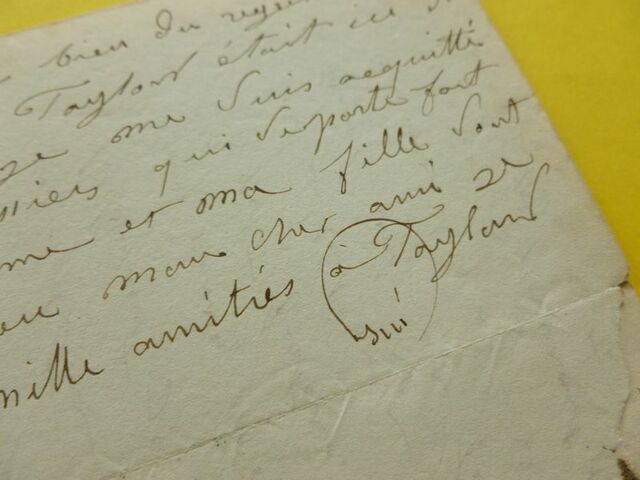 bien du regret
Taylord était ici
je me suis acquitté
qui se porte fort
me et ma fille sont
mon cher ami
mille amitiés à Taylord